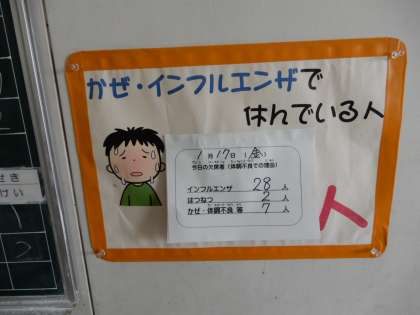 かぜ・インフルエンザで
休んでいる人
1月17日(金)
今日の欠席者(体調不良での理由)
インフルエンザ 28人
はつねつ 2人
かぜ・体調不良 等 7人
人
せき
けい